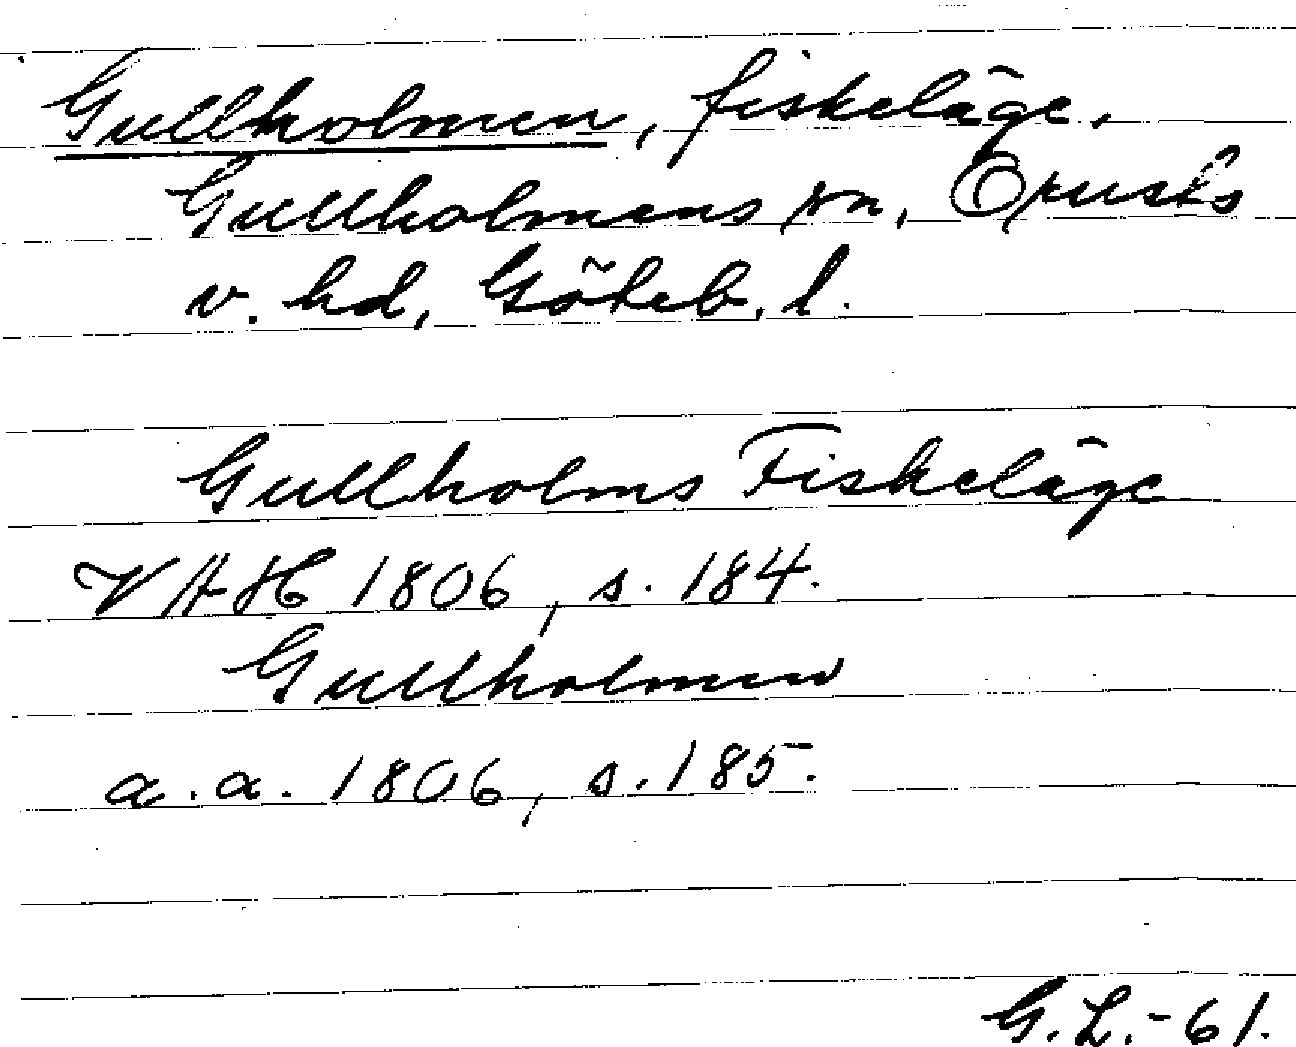 Gullholmen, fiskeläge.
Gullholmens sn, Orusts
v. hd, Göteb. l.
Gullholms Fiskeläge
VAH 1806, s. 184.
Gullholmen
a. a. 1806, s. 185.
G. L. - 61.